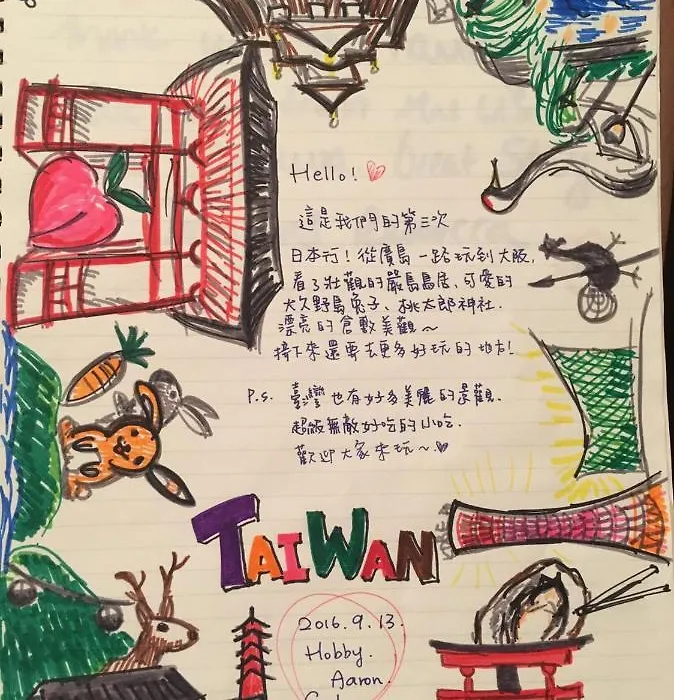 Hello!
這是我們的第三次
日本行！從廣島一路玩到大阪，
看了壯觀的嚴島鳥居、可愛的
大久野島兔子、桃太郎神社．
漂亮的倉敷美觀～
接下來還要去更多好玩的地方！
P.s. 臺灣也有好多美麗的景觀．
超級無敵好吃的小吃．
歡迎大家來玩～
TAIWAN
2016.9.13.
Hobby.
Aaron.